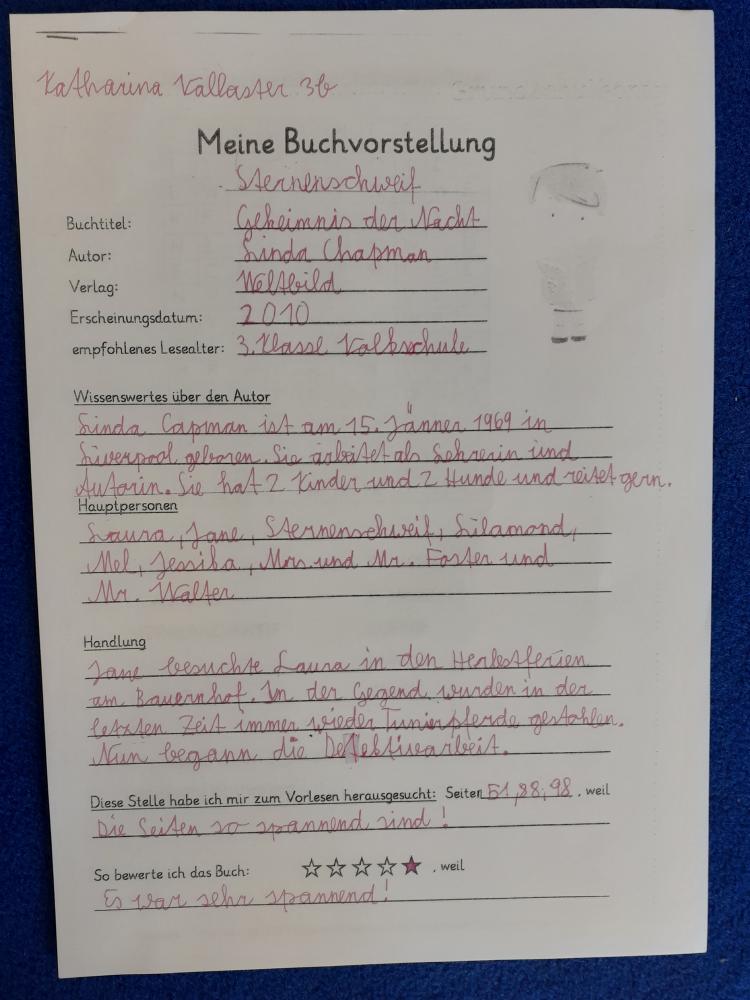 Katharina Kallaster 3b
Meine Buchvorstellung
Sternenschweif
Buchtitel: Geheimnis der Nacht
Autor: Linda Chapman
Verlag: Weltbild
Erscheinungsdatum: 2010
empfohlenes Lesealter: 3. Klasse Volkschule
Wissenswertes über den Autor
Linda Capman ist am 15. Jänner 1969 in
Liverpool geboren. Sie arbeitet als Lehrerin und
Autorin. Sie hat 2 Kinder und 2 Hunde und reitet gern.
Hauptpersonen
Laura, Jane, Sternenschweif, Silamond,
Mel, Jessika, Mrs. und Mr. Foster und
Mr. Walter
Handlung
Jane besuchte Laura in den Herbstferien
am Bauernhof. In der Gegend wurden in der
letzten Zeit immer wieder Tunierpferde gestohlen.
Nun begann die Detektivarbeit.
Diese Stelle habe ich mir zum Vorlesen herausgesucht: Seiten 51, 88, 98, weil
Die Seiten so spannend sind!
So bewerte ich das Buch: ☆☆☆☆★, weil
Es war sehr spannend!